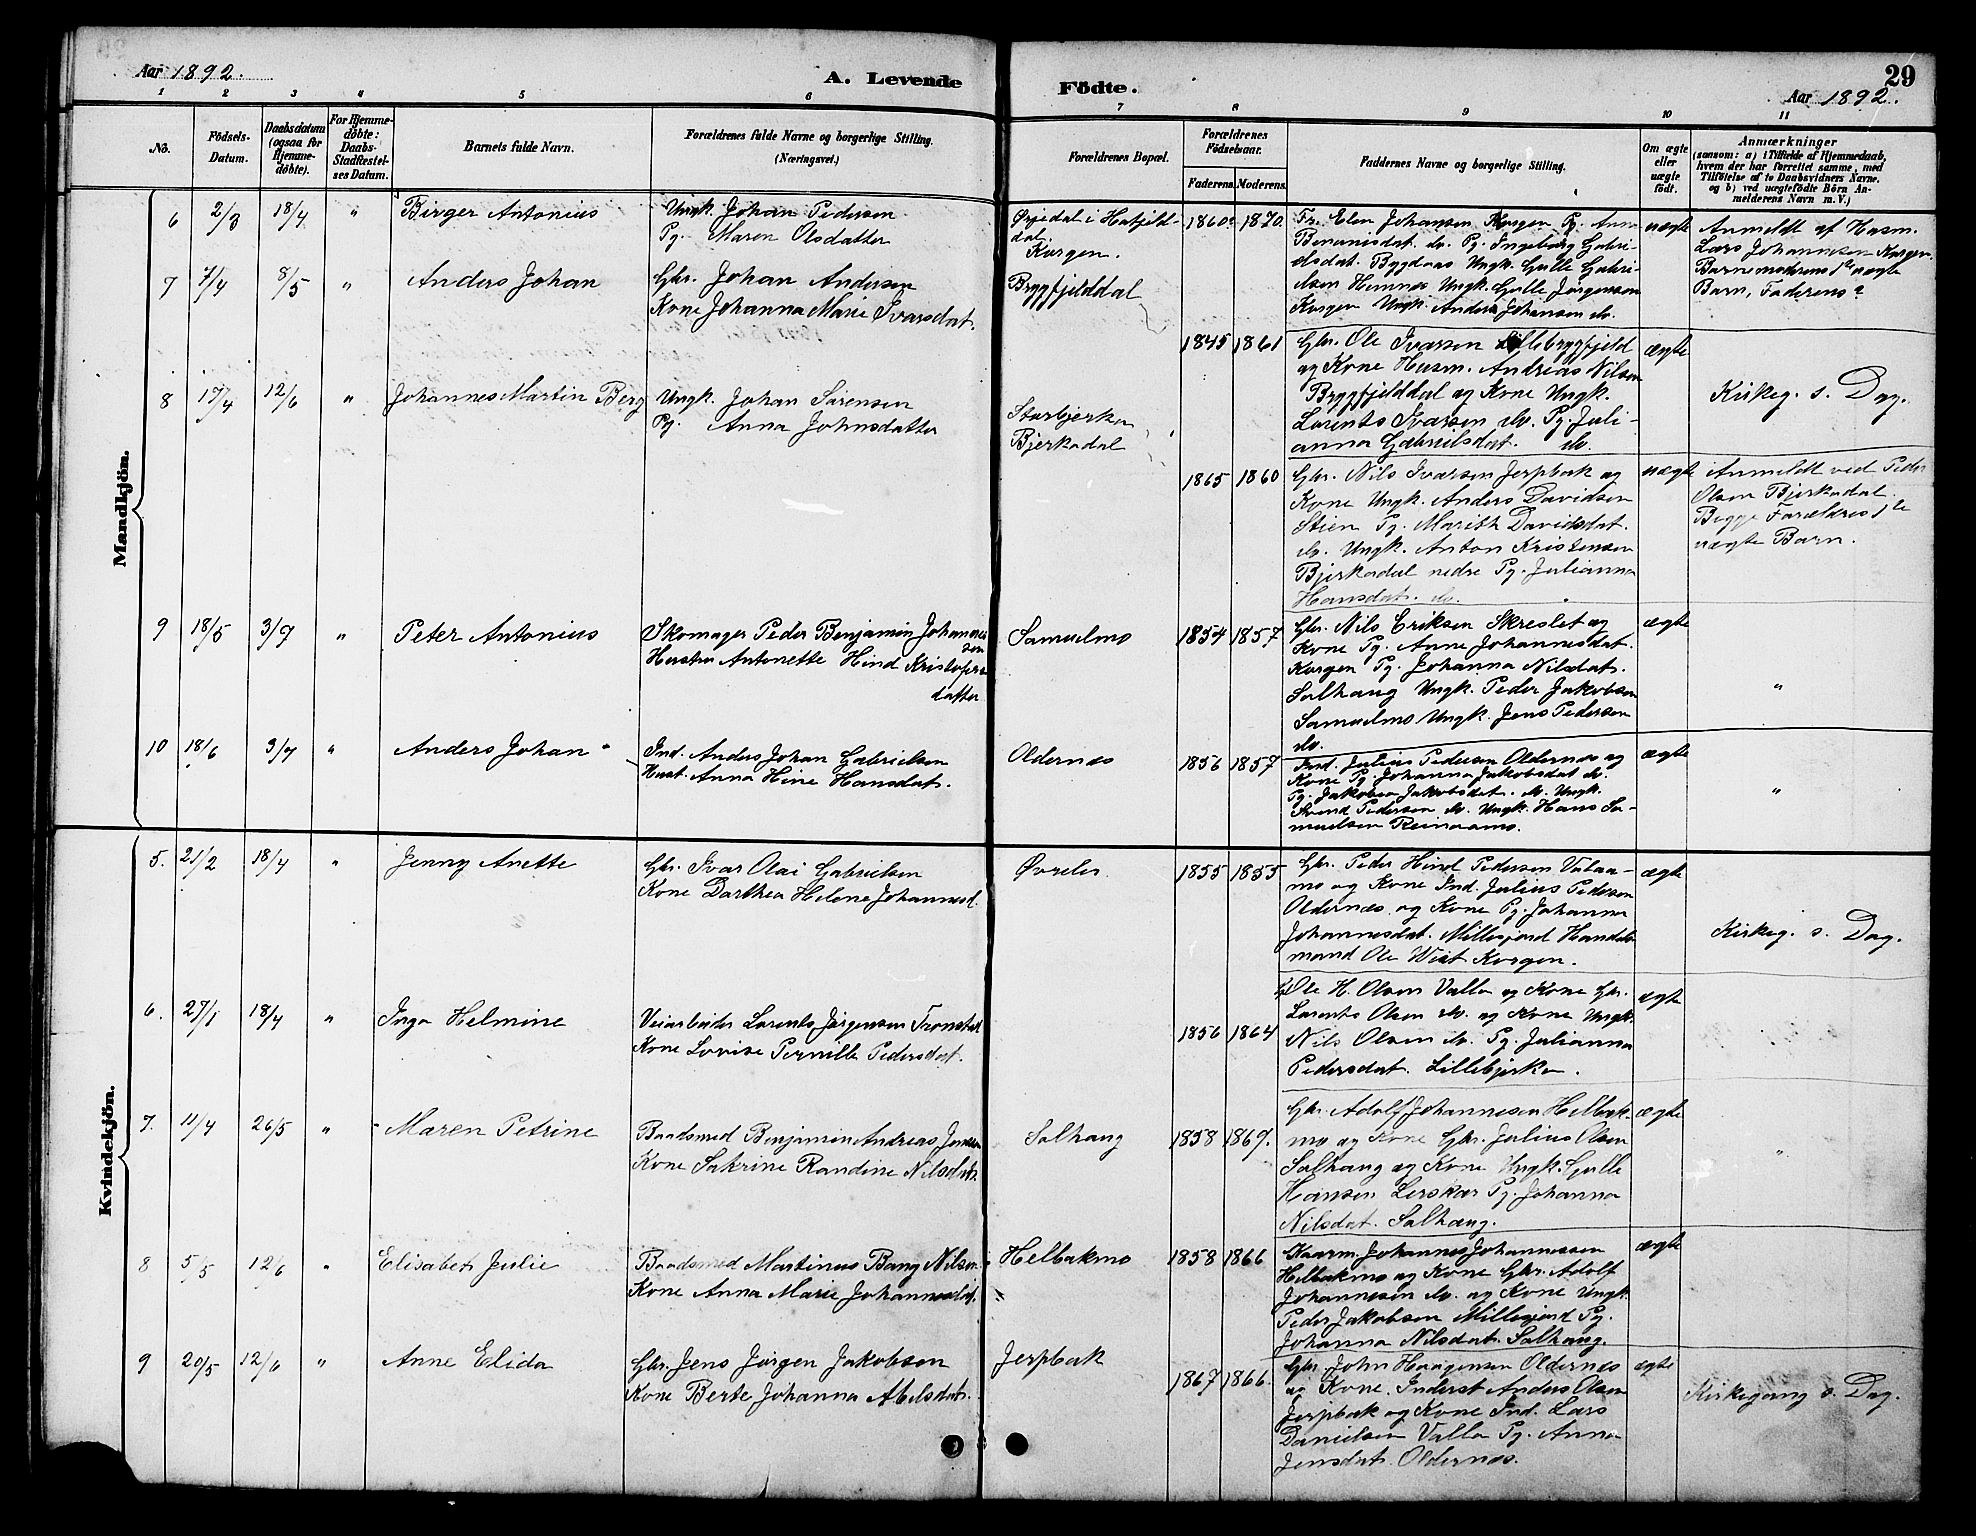 Aar 1892.
A. Levende
Fødte.
29
Aar 1892.
1 2 3 4 5 6 7 8 9 10 11
No.
Fødsels-
Datum.
Daabsdatum
(ogsaa for
Hjemme-
døbte).
For Hjemme-
døbte:
Daabs-
Stadfæstel-
ses Datum.
Barnets fulde Navn.
Forældrenes fulde Navne og borgerlige Stilling.
(Næringsvei.)
Forældrenes Bopæl.
Forældrenes
Fødselsaar.
Faderens. Moderens.
Faddernes Navne og borgerlige Stilling.
Om ægte
eller
uægte
født.
Anmærkninger
(saasom: a) i Tilfælde af Hjemmedaab,
hvem der har forrettet samme, med
Tilføielse af to Daabsvidners Navne.
og b) ved uægtefødte Børn An-
melderens Navn m. V.)
Mandkjön.
6 2/3 18/4 " Birger Antonius
Ungk. Johan Pedersen
Pg. Maren Olsdatter
Ørjedal i Hatfjeld-
dal
Korgen.
1860? 1870.
Fr. Elen Johansen Korgen Pg. Anna
Benonisdat. do. Pg. Ingeborg Gabri-
elsdat. Bygdaas Ungk. Gulle Gabri-
elsen Hemnes Ungk. Gulle Jørgensen
Korgen Ungk. Anders Johansen do.
uægte
Anmeldt af Husm.
Lars Johannesen Korgen.
Barnemoderens 1ste uægte
Barn, Faderens?
7 7/4 8/5 " Anders Johan
Gbr. Johan Andersen
Kone Johanna Marie Ivarsdat.
Bryggfjelddal
1845 1861
Gbr. Ole Ivarsen Lillebryggfjeld
og Kone Husm. Andreas Nilsen
Bryggfjelddal og Kone Ungk.
Lorents Ivarsen do. Pg. Juli-
anna Gabrielsdat. do.
ægte
Kirkeg. s. Dag.
8 17/4 12/6 " Johannes Martin Berg
Ungk. Johan Sørensen
Pg. Anna Johnsdatter
Storbjerka
Bjerkadal
1865 1860
Gbr. Nils Ivarsen Jerpbak og
Kone Ungk. Anders Davidsen
Stien Pg. Marith Davidsdat.
do. Ungk. Anton Kristensen
Bjerkadal nedre Pg. Julianna
Hansdat. do.
uægte
Anmeldt ved Peder
Olsen Bjerkadal.
Begge Forældres 1ste
uægte Barn.
9 18/5 3/7 " Peter Antonius
Skomager Peder Benjamin Johannes
sen
Hustru Antonette Hind Kristofers
datter
Samuelmo
1854 1857
Gbr. Nils Eriksen Skreslet og
Kone Pg. Anne Johannesdat.
Korgen Pg. Johanna Nilsdat.
Salhaug Ungk. Peder Jakobsen
Samuelmo Ungk. Jens Pedersen
do.
ægte
"
10 18/6 3/7 " Anders Johan
Ind. Anders Johan Gabrielsen
Hust. Anna Hine Hansdat.
Oldernæs
1856 1857
Ind. Julius Pedersen Oldernæs og
Kone Pg. Johanna Jakobsdat do.
Pg. Jakobea Jakobsdat. do. Ungk.
Svend Pedersen do. Ungk. Hans Sa-
muelsen Reinaamo.
ægte
"
Kvindekjön.
5. 21/2 18/4 " Jenny Anette
Gbr. Ivar Olai Gabrielsen
Kone Darthea Helene Johannesd.
Øvreler
1855 1855
Gbr. Peder Hind Pedersen Valaa-
mo og Kone Ind. Julius Pedersen
Oldernæs og Kone Pg. Johanna
Johannesdat. Millesjord Handels-
mand Ole Wist Korgen.
ægte
Kirkeg. s. Dag.
6. 27/1 18/4 " Inga Helmine
Veiarbeider Lorents Jørgensen Tronstad
Kone Lovise Pernille Pedersdat.
1856 1864
Ole H. Olsen Valla og Kone Gbr.
Lorents Olsen do. og Kone Ungk.
Nils Olsen do. Pg. Julianna
Pedersdat. Lillebjerka.
ægte
7. 11/4 26/5 " Maren Petrine
Baadsmed Benjamin Andreas Jensen
Kone Sakrine Randine Nilsdat.
Salhaug
1858 1869.
Gbr. Adolf Johannesen Helbak-
mo og Kone Gbr. Julius Olsen
Salhaug og Kone Ungk. Gulle
Hansen Lerskar Pg. Johanna
Nilsdat. Salhaug.
ægte
"
8 5/5 12/6 " Elisabet Julie
Baadsmed Martinus Bang Nilsen
Kone Anna Marie Johannesdat.
Helbakmo
1858 1866
Kaarm. Johannes Johannessen
Helbakmo og Kone Gbr. Adolf
Johannesen do. og Kone Ungk.
Peder Jakobsen Millesjord Pg.
Johanna Nilsdat. Salhaug.
ægte
9 20/5 12/6 " Anne Elida
Gbr. Jens Jørgen Jakobsen
Kone Berte Johanna Abelsdat.
Jerpbak
1867 1866.
Gbr. John Haagensen Oldernæs
og Kone. Inderst Anders Olsen
Jerpbak og Kone Ind. Lars
Danielsen Valla Pg. Anna
Jensdat. Oldernæs.
ægte
Kirkegang s. Dag.